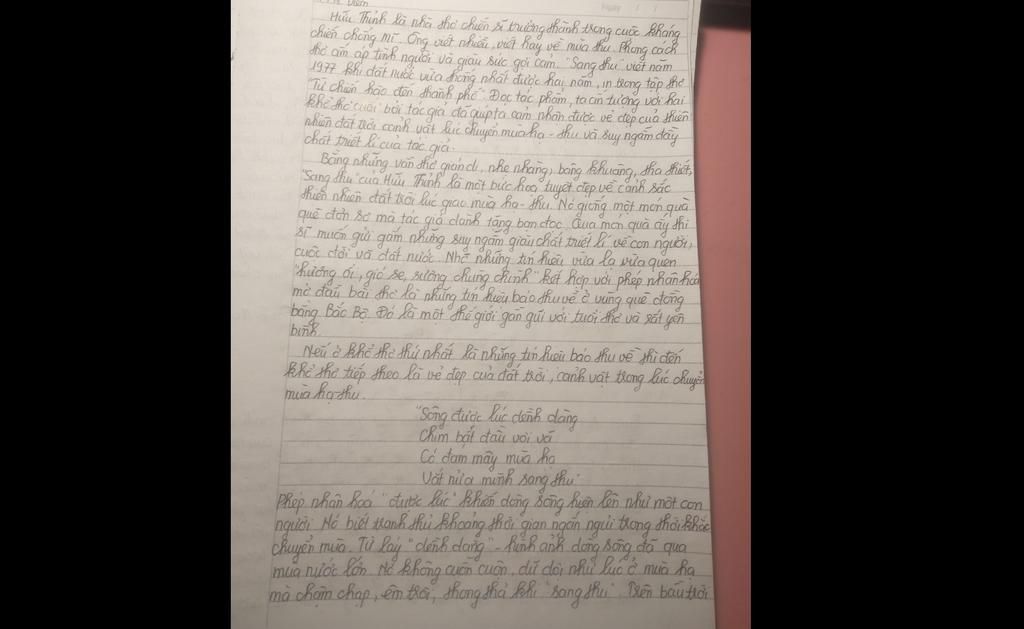 Hữu Thỉnh là nhà thơ chiến sĩ trưởng thành trong cuộc kháng
chiến chống mĩ. Ông viết nhiều, viết hay về mùa thu. Phong cách
thơ ấm áp tình người và giàu sức gợi cảm. "Sang thu" viết năm
1977 khi đất nước vừa thống nhất được hai năm, in trong tập thơ
"Từ chiến hào đến thành phố". Đọc tác phẩm, ta ấn tượng với hai
khổ thơ cuối bởi tác giả đã giúp ta cảm nhận được vẻ đẹp của thiên
nhiên đất trời cảnh vật lúc chuyển mùa hạ - thu và suy ngẫm đầy
chất triết lí của tác giả.
Bằng những vần thơ giản dị, nhẹ nhàng, bâng khuâng, tha thiết,
"Sang thu" của Hữu Thỉnh là một bức hoạ tuyệt đẹp về cảnh sắc
thiên nhiên đất trời lúc giao mùa hạ - thu. Nó giống một món quà
quê đơn sơ mà tác giả dành tặng bạn đọc. Qua món quà ấy thi
sĩ muốn gửi gắm những suy ngẫm giàu chất triết lí về con người,
cuộc đời và đất nước. Nhờ những tín hiệu vừa lạ vừa quen
"hương ổi, gió se, sương chùng chình" kết hợp với phép nhân hoá
mở đầu bài thơ là những tín hiệu báo thu về ở vùng quê đồng
bằng Bắc Bộ. Đó là một thế giới gần gũi với tuổi thơ và rất yên
bình.
Nếu ở khổ thơ thứ nhất là những tín hiệu báo thu về thì đến
khổ thơ tiếp theo là vẻ đẹp của đất trời, cảnh vật trong lúc chuyển
mùa hạ-thu.
"Sông được lúc dềnh dàng
Chim bắt đầu vội vã
Có đám mây mùa hạ
Vắt nửa mình sang thu"
Phép nhân hoá "được lúc" khiến dòng sông hiện lên như một con
người. Nó biết tranh thủ khoảng thời gian ngắn ngủi trong thời khắc
chuyển mùa. Từ láy "dềnh dàng" - hình ảnh dòng sông đã qua
mùa nước lớn. Nó không cuồn cuộn, dữ dội như lúc ở mùa hạ
mà chậm chạp, êm trôi, thong thả khi "sang thu". Trên bầu trời